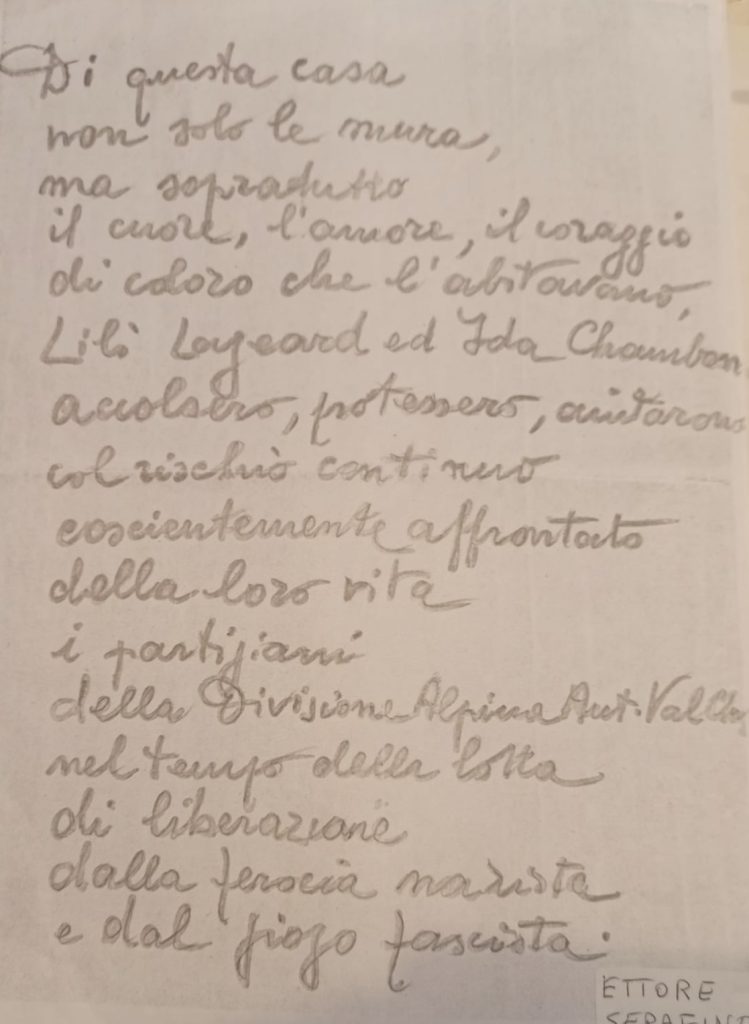 Di questa casa
non solo le mura,
ma sopradutto
il cuore, l'amore, il coraggio
di coloro che l'abitavano,
Lilì Lageard ed Ida Chambon
accolsero, protessero, aiutarono
col rischio continuo
coscientemente affrontato
della loro vita
i partigiani
della Divisione Alpina Aut. Val
nel tempo della lotta
di liberazione
dalla ferocia nazista
e dal giogo fascista.
ETTORE